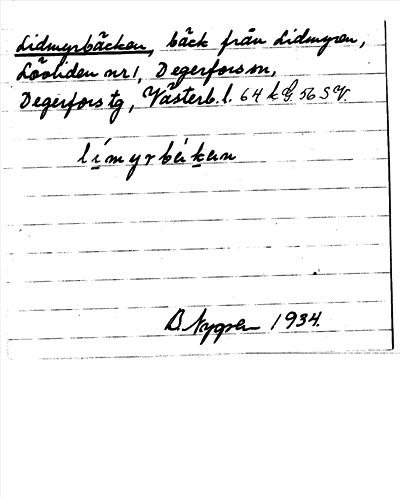 Lidmyrbäcken, bäck från Lidmyren,
Lövliden nr 1, Degerfors sn,
Degerfors tg, Västerb. l. 64 k G. 56 S V.
límyrbäkan
B. Nygren 1934.